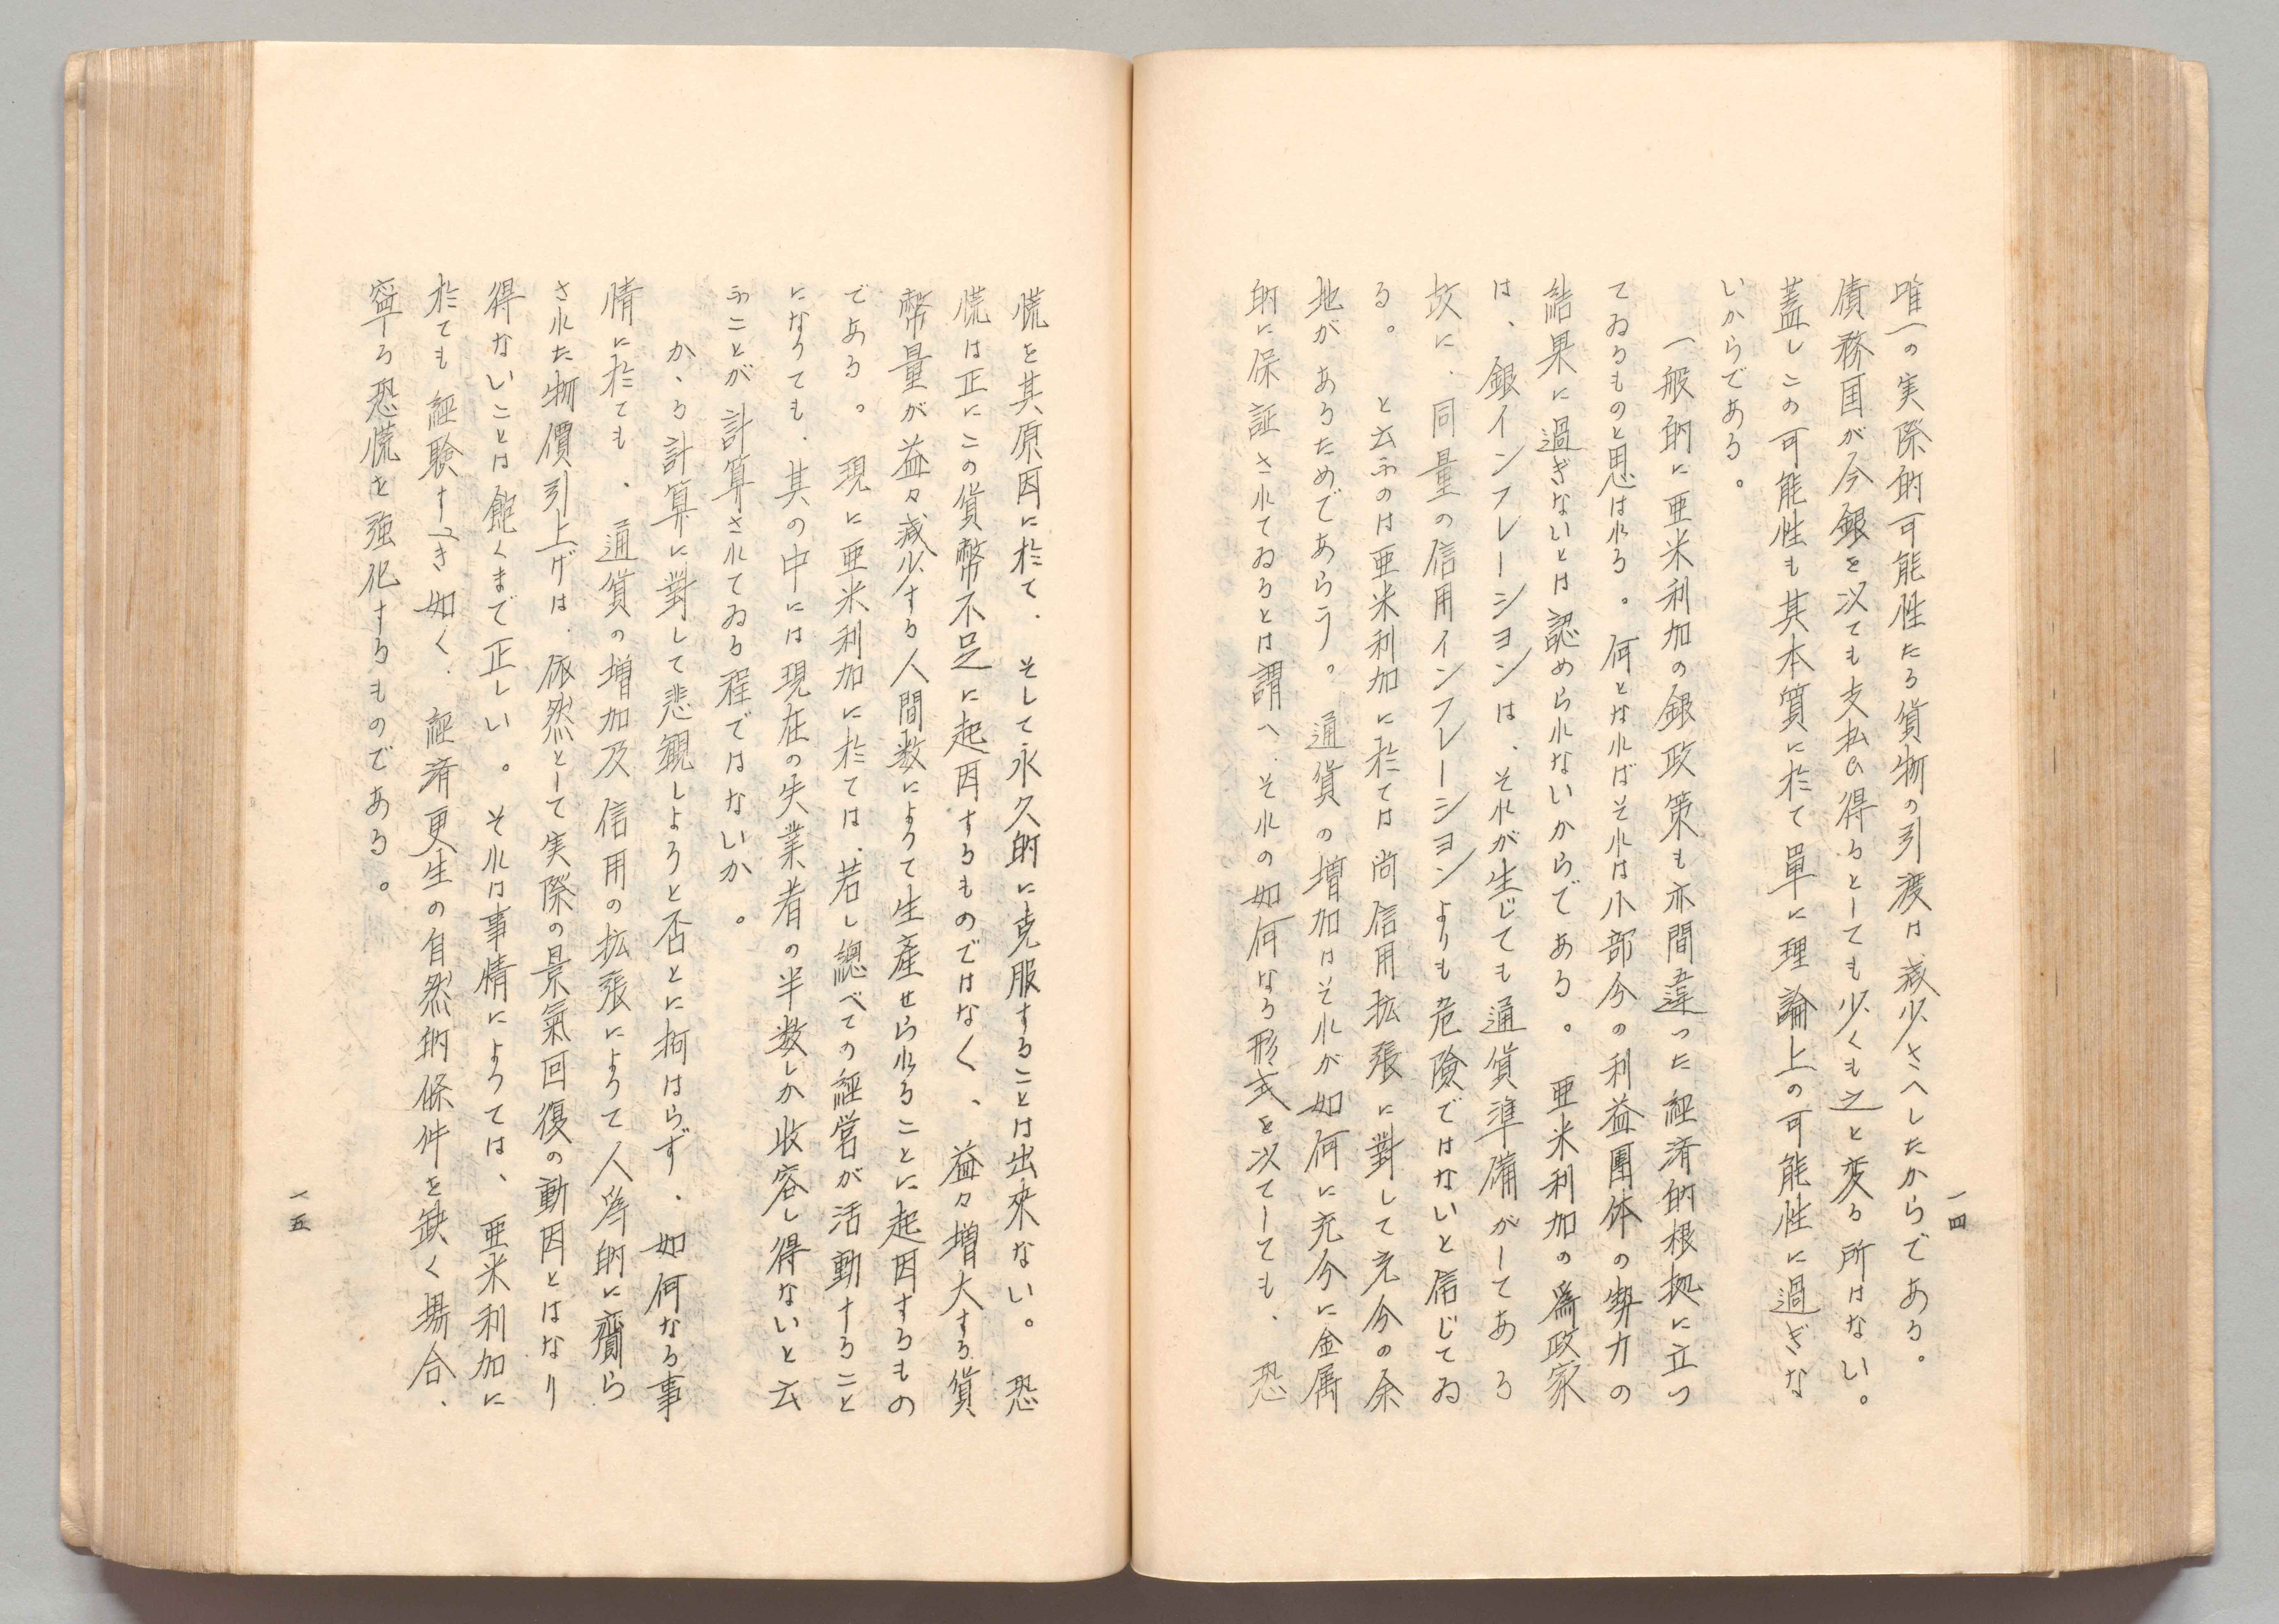 唯一の実際的可能性たる貨物の引渡は減少さへしたからである。
債務国が今銀を以ても支払ひ得るとしても少くも之と変る所はない。
蓋しこの可能性も其本質に於て単に理論上の可能性に過ぎな
いからである。
一般的に亜米利加の銀政策も亦間違った経済的根拠に立つ
てゐるものと思はれる。何となればそれは小部分の利益團体の勢力の
結果に過ぎないとは認められないからである。亜米利加の為政家
は、銀インフレーションは、それが生じても通貨準備がしてある
故に、同量の信用インフレーションよりも危険ではないと信じてゐ
る。と云ふのは亜米利加に於ては尚信用拡張に對して充分の余
地があるためであらう。通貨の増加はそれが如何に充分に金属
的に保証されてゐるとは謂へ、それの如何なる形式を以てしても、恐
一四
慌を其原因に於て、そして永久的に克服することは出來ない。恐
慌は正にこの貨幣不足に起因するものではなく、益々増大する貨
幣量が益々減少する人間数によって生産せられることに起因するもの
である。現に亜米利加に於ては、若し總べての経営が活動すること
になっても、其の中には現在の失業者の半数しか收容し得ないと云
ふことが計算されてゐる程ではないか。
かゝる計算に對して悲観しようと否とに拘はらず、如何なる事
情に於ても、通貨の増加及信用の拡張によって人為的に齎ら
された物價引上げは、依然として実際の景氣回復の動因とはなり
得ないことは飽くまで正しい。それは事情によっては、亜米利加に
於ても経験すべき如く、経済更生の自然的條件を缺く場合、
寧ろ恐慌を強化するものである。
一五